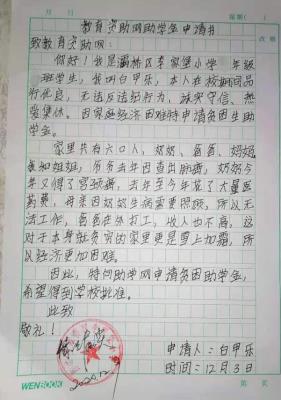 月 日 星期( )
教育资助网助学金申请书
致教育资助网:
你好!我是灞桥区李家堡小学 年级
班学生,我叫白甲乐,本人在校期间品
行优良,无违反法纪行为,诚实守信、热
爱集体。因家庭经济困难特申请贫困生助
学金。
家里共有六口人,奶奶、爸爸、妈妈
和姐姐,去年因查出肺癌,奶奶今
年又得了宫颈癌,去年至今年花了大量医
药费,母亲因奶奶生病需要照顾,所以无
法工作,爸爸在外打工,收入也不高。这
对于本身就贫穷的家里更是雪上加霜,所
以经济更加困难。
因此,特向助学网申请贫困助学金,
希望得到学校批准。
此致
敬礼!
申请人:白甲乐
时间:12月3日
2020.12.
WENBOOK
第 页